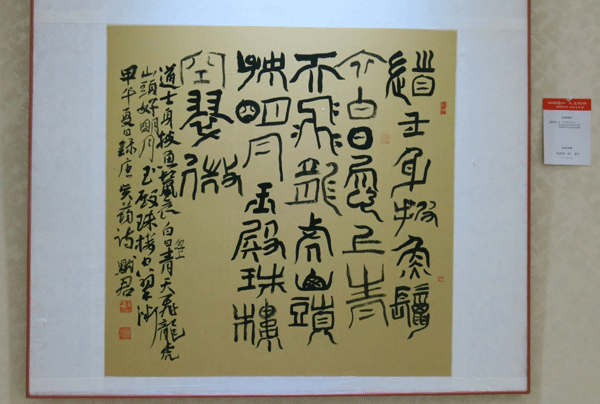 道士身披魚鬣
衣白日忽上青
天飛龍虎山頭
好明月玉殿珠樓
空翠微
道士身披魚鬣衣白日青天飛龍虎
山頭好明月玉殿珠樓空翠微
甲午夏日錄唐詩